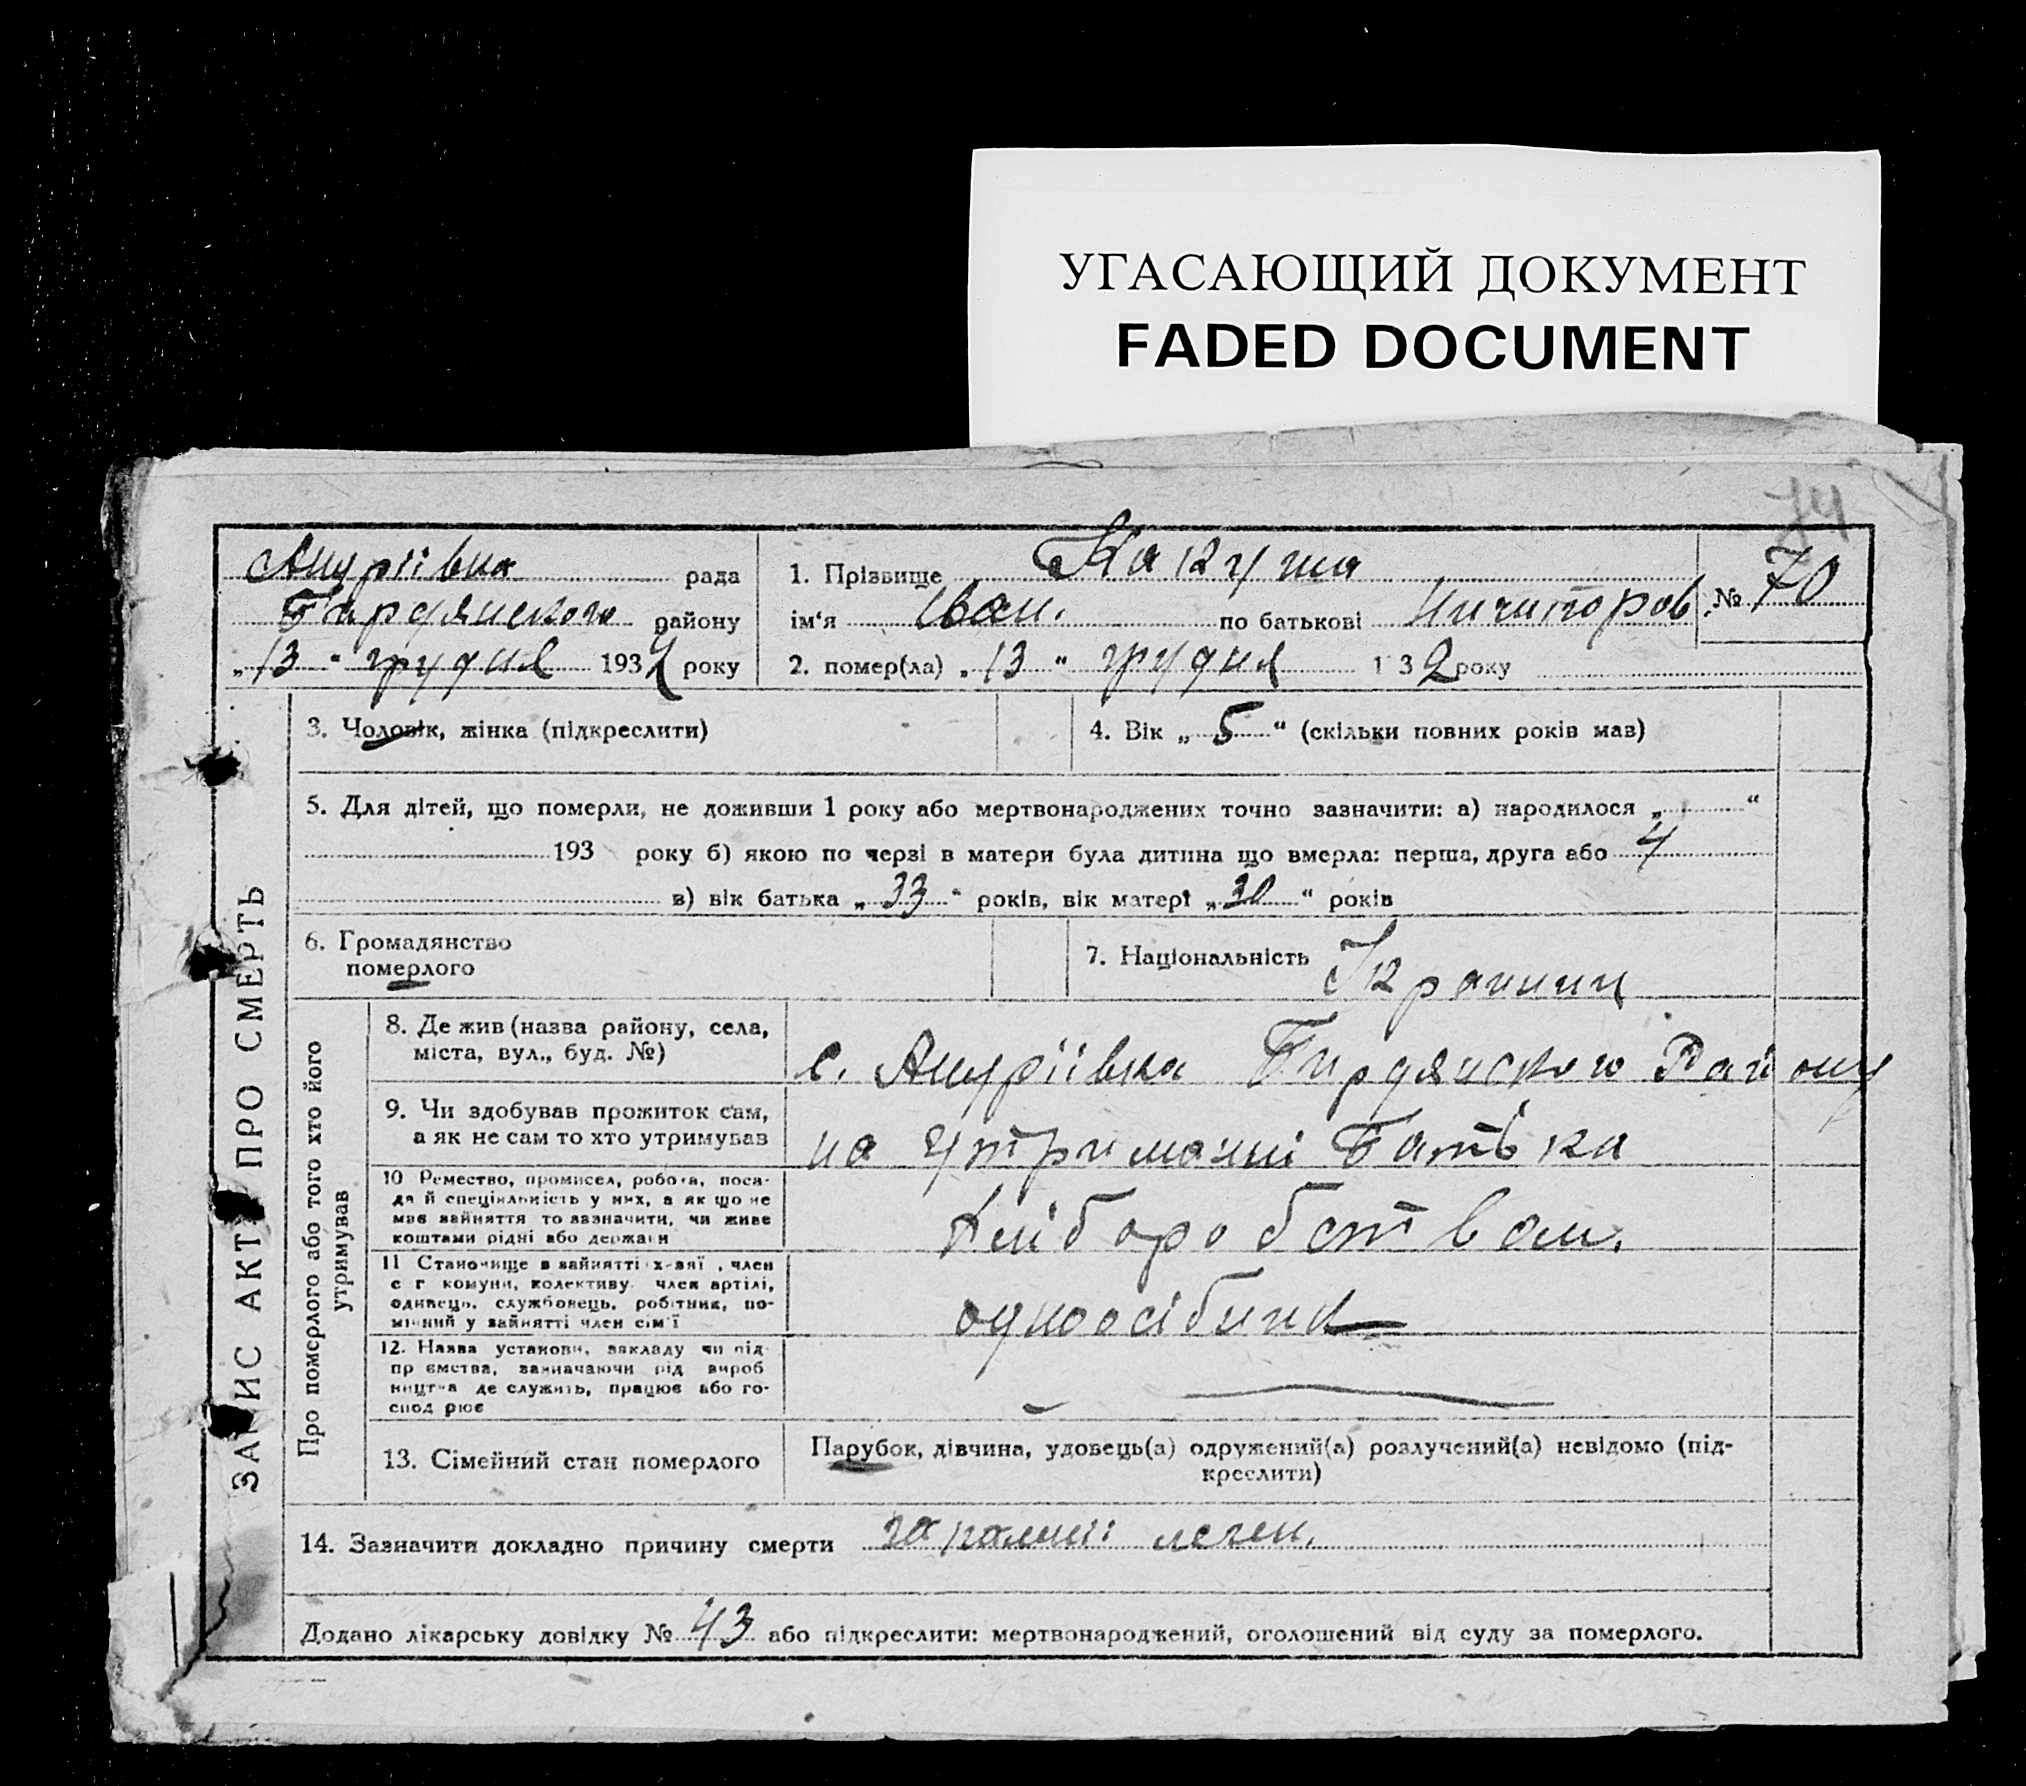 УГАСАЮЩИЙ ДОКУМЕНТ
FADED DOCUMENT
74
ЗАПИС АКТУ ПРО СМЕРТЬ
Андріівка рада
Бирдянского району
„13“ грудня 1932 року
1. Прізвище
ім'я Іван. по батькові Ничипоров
№ 70
2. помер(ла) „13“ грудня 1 32 року
3. Чоловік, жінка (підкреслити)
4. Вік „5“ (скільки повних років мав)
5. Для дітей, що померли, не доживши 1 року або мертвонароджених точно зазначити: а) народилося „ “
193 року б) якою по черзі в матери була дитина що вмерла: перша, друга або 4
в) вік батька „33“ років, вік матері „30“ років
6. Громадянство
померлого
7. Національність Украинц
Про померлого або того хто його
утримував
8. Де жив (назва району, села,
міста, вул., буд. №)
с. Андріівка Бирдянского Району
9. Чи здобував прожиток сам,
а як не сам то хто утримував
на утриманні Батька
10 Ремество, промисел, робота, поса-
да й спеціяльність у них, а як що не
має зайняття то зазначити, чи живе
коштами рідні або держави
хліборобством.
11 Становище в зайнятті хазяї, член
с г комуни, колективу член артілі,
одинець, службовець, робітник, по-
мічний у зайнятті член сім'ї
одноосібник
12. Назва установи, закладу чи під
пр ємства, зазначаючи рід вироб
ництва де служить, працює або го-
спод рює
13. Сімейний стан померлого
Парубок, дівчина, удовець(а) одружений(а) розлучений(а) невідомо (під-
креслити)
14. Зазначити докладно причину смерти легень.
Додано лікарську довідку № 43 або підкреслити: мертвонароджений, оголошений від суду за померлого.